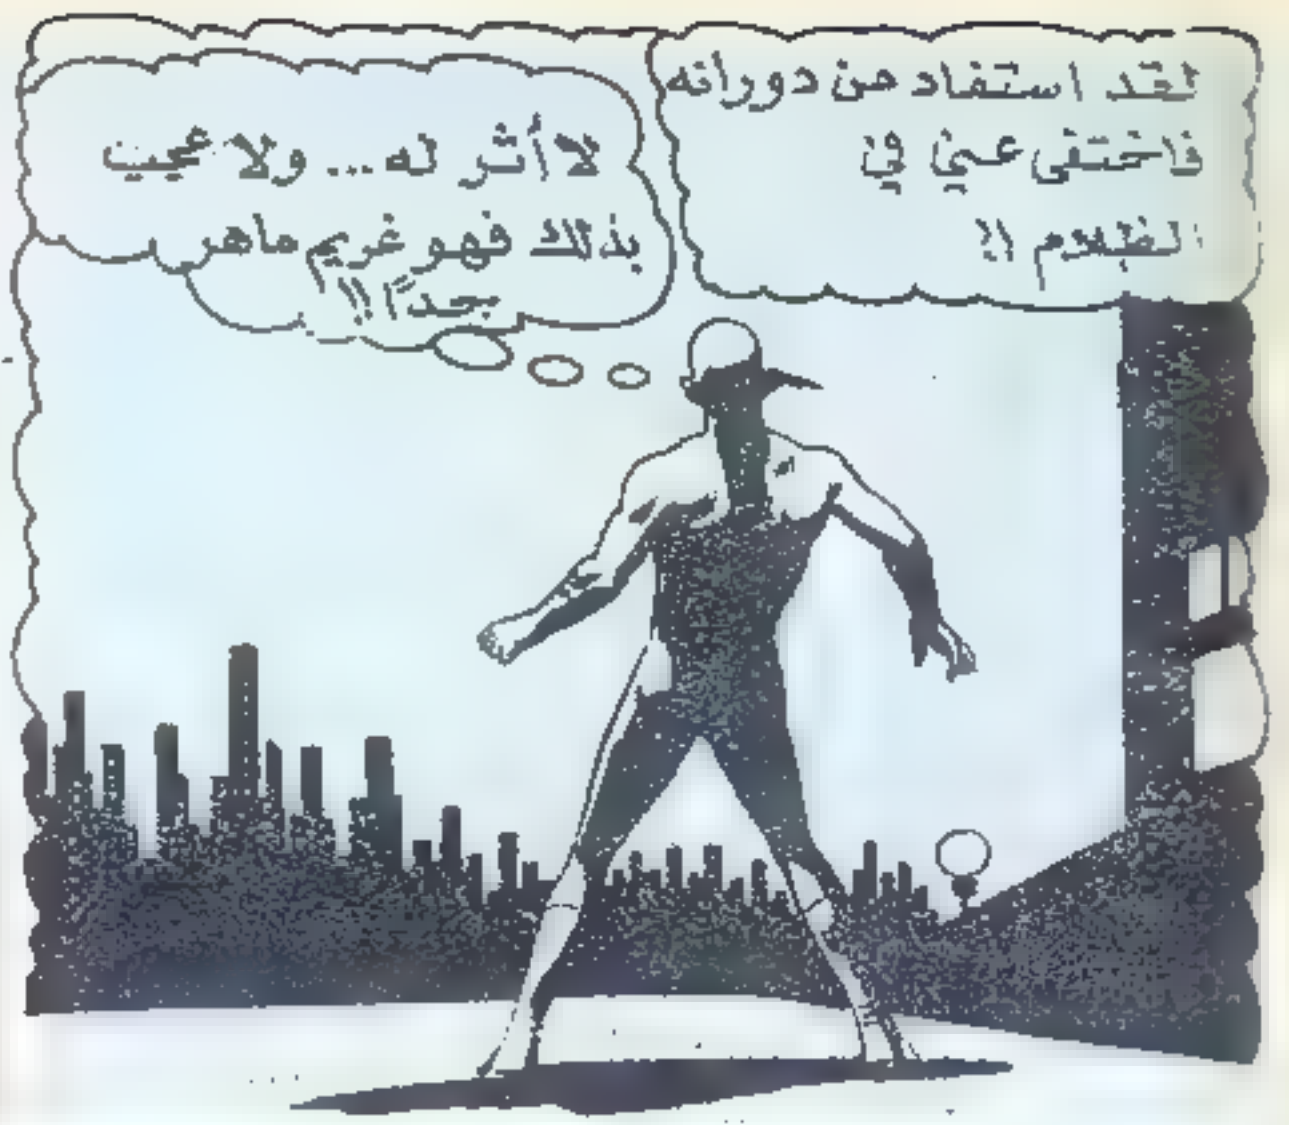 لقد استفاد من دورانه
فاختفى عني في
الظلام !!
لا أثر له... ولا عجب
بذلك فهو غريم ماهر
جداً !!